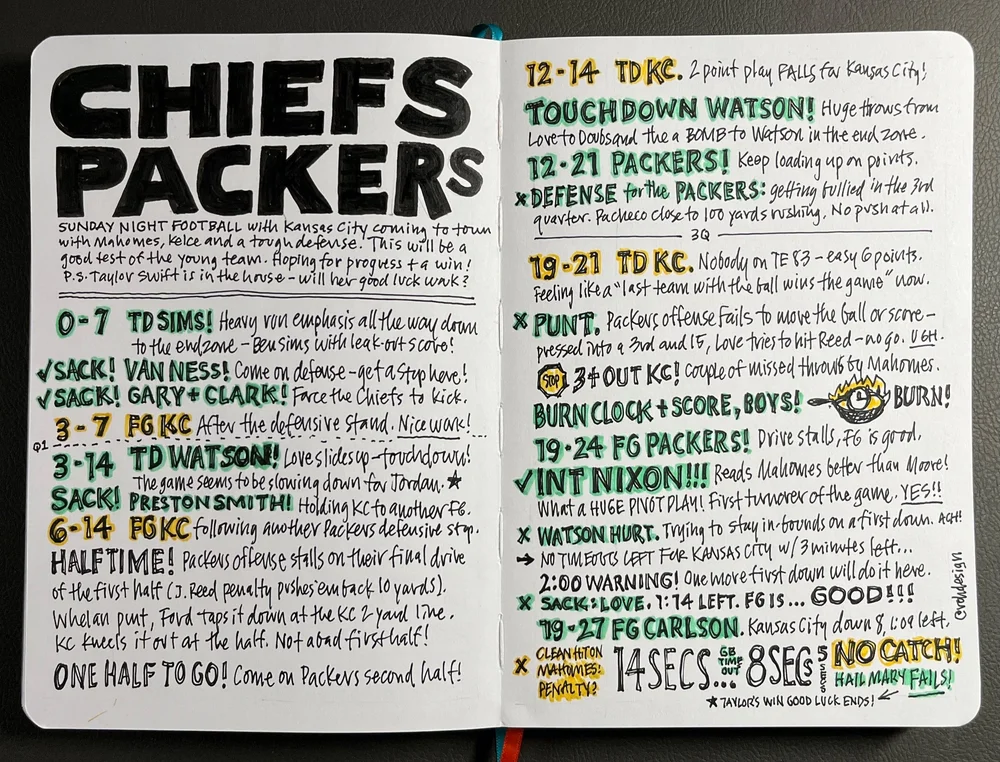 CHIEFS
PACKERS
SUNDAY NIGHT FOOTBALL with Kansas City coming to town
with Mahomes, Kelce and a tough defense. This will be a
good test of the young team. Hoping for progress + a win!
P.S. Taylor Swift is in the house – will her good luck work?
0-7 TD SIMS! Heavy run emphasis all the way down
to the endzone – Ben Sims with leak-out score!
✓SACK! VAN NESS! Come on defense – get a stop here!
✓SACK! GARY + CLARK! Force the Chiefs to kick.
3-7 FG KC After the defensive stand. Nice work!
Q1
3-14 TD WATSON! Love slides up – touchdown!
The game seems to be slowing down for Jordan. ★
SACK! PRESTON SMITH! Holding KC to another FG.
6-14 FG KC following another Packers defensive stop.
HALFTIME! Packers offense stalls on their final drive
of the first half (J. Reed penalty pushes 'em back 10 yards).
Whelan punt, Ford taps it down at the KC 2-yard line.
KC kneels it out at the half. Not a bad first half!
ONE HALF TO GO! Come on Packers second half!
12-14 TD KC. 2 point play FAILS for Kansas City!
TOUCHDOWN WATSON! Huge throws from
Love to Doubs and the a BOMB to Watson in the end zone.
12-21 PACKERS! Keep loading up on points.
x DEFENSE for the PACKERS: getting bullied in the 3rd
quarter. Pacheco close to 100 yards rushing. No push at all.
3Q
19-21 TD KC. Nobody on TE 83 – easy 6 points.
Feeling like a "last team with the ball wins the game" now.
x PUNT. Packers offense fails to move the ball or score –
pressed into a 3rd and 15, Love tries to hit Reed – no go. UGH.
STOP 3 + OUT KC! Couple of missed throws by Mahomes.
BURN CLOCK + SCORE, BOYS! BURN!
19-24 FG PACKERS! Drive stalls, FG is good.
✓INT NIXON!!! Reads Mahomes better than Moore!
What a HUGE PIVOT PLAY! First turnover of the game. YES!!
x WATSON HURT. Trying to stay in-bounds on a first down. AGH!
→ NO TIMEOUTS LEFT FOR KANSAS CITY w/ 3 minutes left...
2:00 WARNING! One more first down will do it here.
x SACK: LOVE. 1:14 LEFT. FG IS... GOOD!!!
19-27 FG CARLSON. Kansas City down 8, 1:09 left.
x CLEAN HIT ON
MAHOMES!
PENALTY?
14 SECS...
GB
TIME
OUT
8 SECS
5
SECS
NO CATCH!
HAIL MARY FAILS!
★ TAYLOR'S WIN GOOD LUCK ENDS! ←
@rohdesign